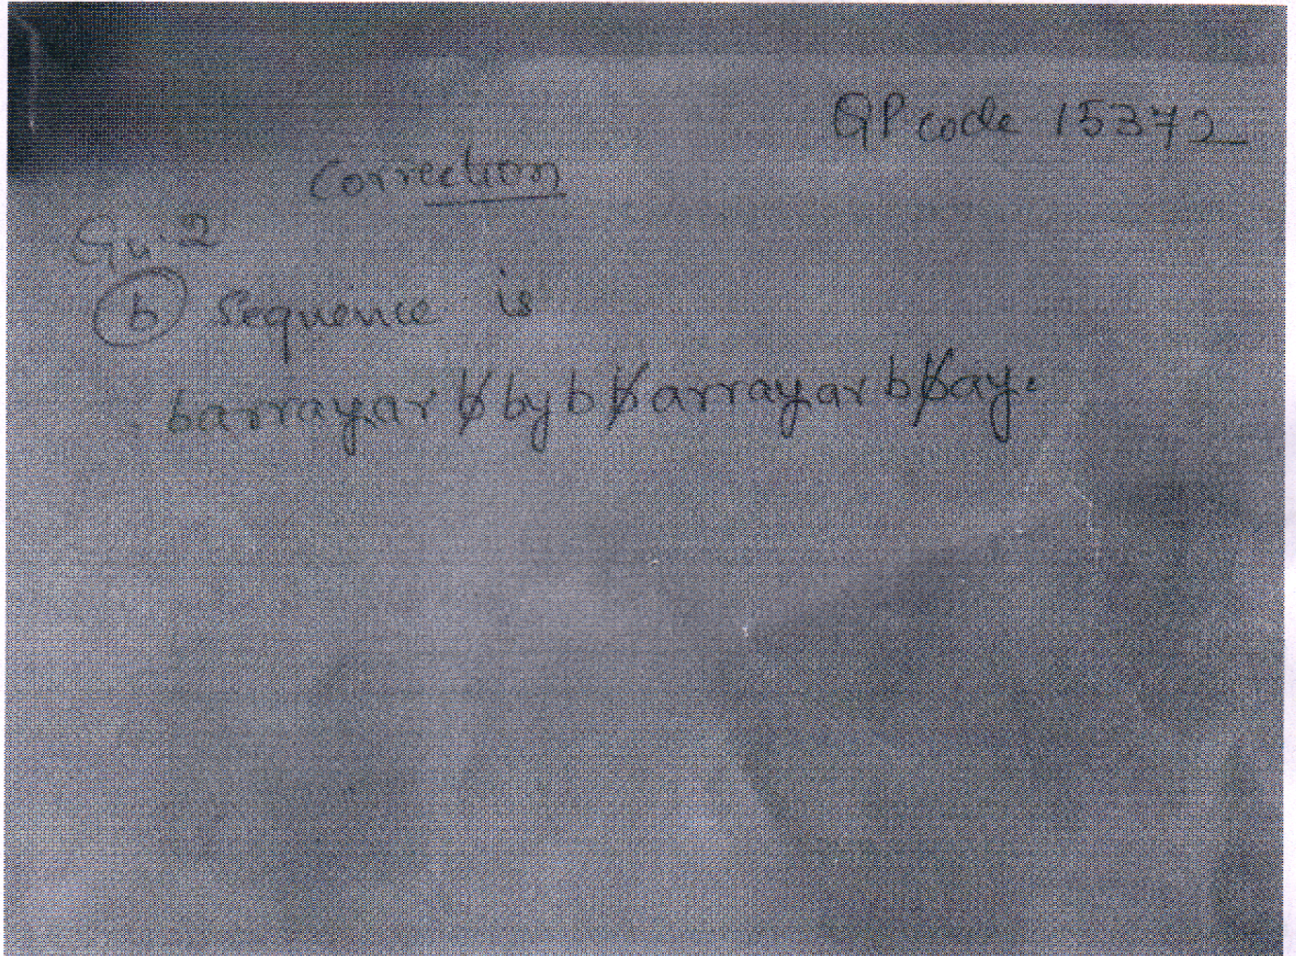 QP code 15372
Correction
Qu.2
(b) Sequence is
barrayar ƀ by b ƀ arrayar b ƀ ay.